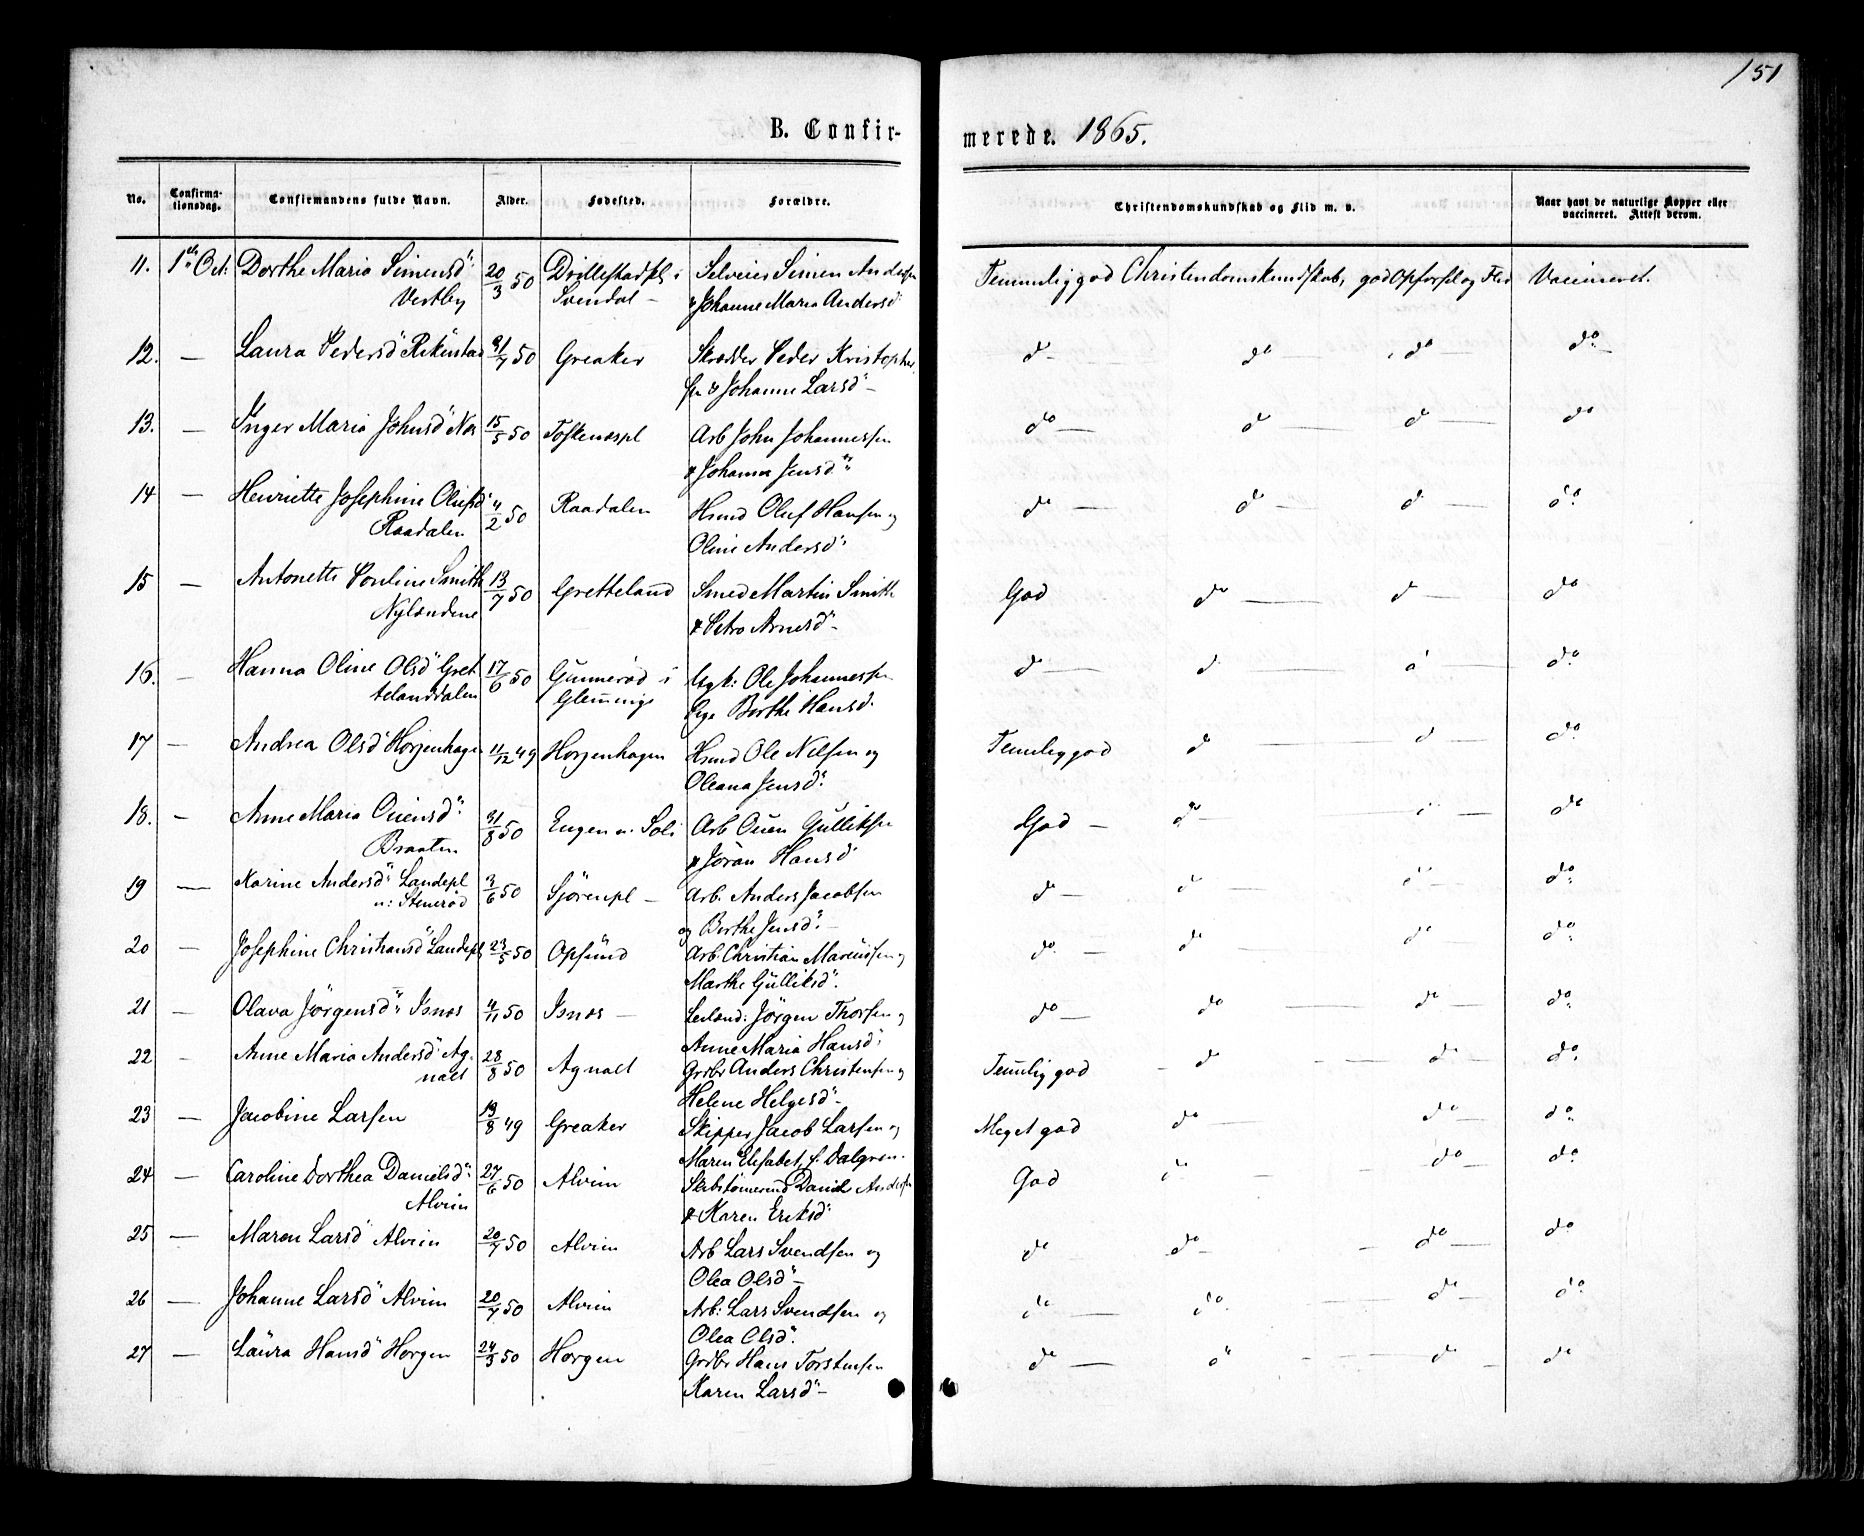 151
B. Confir-
merede. 1865.
No.
Confirma-
tionsdag.
Confirmandens fulde Navn.
Alder.
Fødested.
Forældre.
Christendomskundskab og Flid m. v.
Naar havt de naturlige Kopper eller
vaccineret. Attest derom.
11. 1ste Oct: Dorthe Maria Simensd: 20/3 50 i Selveier Simen Andersen Temmelig god Christendomskundskab, god Opførsel og Flid Vaccineret.
Vestby Svendal - & Johanne Maria Andersd:
12. — Laura Pedersd: 31/7 50 Greaker Skrædder Peder Kristopher do do do do
sen & Johanne Larsd: -
13. — Inger Maria Johnsd: Næs 15/5 50 Arb John Johannessen do do do do
& Johanna Jensd:
14 — Henriette Josephine Olufsd: 4/2 50 Raadalen Hmd Oluf Hansen og do do do do
Raadalen Oline Andersd:
15 — Antonette Pouline Smith 13/7 50 Gretteland Smed Martin Smith God do do do
Nylændene & Petro Arnesd: -
16. — Hanna Oline Olsd: Gret 17/6 50 Gunnerød i Ole Johannessen do do do do
telanddalen Glemminge Berthe Hansd:
17 — Andrea Olsd: Horgenhagen 11/12 49 Horgenhagen Hmd Ole Nilsen og Temelig god do do do
Oleana Jensd:
18. — Anne Maria Ouensd: 31/8 50 Arb Ouen Gulliksen God do do do
Braaten & Jöran Hansd:
19 — Karine Andersd: Landepl 3/6 50 Sjörenpl - Arb. Anders Jacobsen do do do do
u: Stenerød og Berthe Jensd: -
20 — Josephine Christiansd: Landepl 23/5 50 Opsund Arb: Christian Marcussen og do do do do
Marthe Gulliksd:
21 — Olava Jörgensd: Isnæs 4/11 50 Isnæs - Leilænd: Jörgen Thorsen og do do do do
Anne Maria Hansd:
22 — Anne Maria Andersd: Ag- 28/8 50 Agnalt Grdbr Anders Christensen og Temelig god do do do
nalt Helene Helgesd: -
23 — Jacobine Larsen 13/8 49 Greaker Skipper Jacob Larsen og Meget god do do do
Maren Elisabet f. Dalgren.
24 — Caroline Dorthea Danielsd: 27/6 50 Alvim Daniel Andersen God do do do
Alvim & Karen Eriksd:
25 — Maren Larsd: Alvim 20/7 50 Alvim Arb Lars Svendsen og do do do do
Olea Olsd: -
26 — Johanne Larsd: Alvim 20/7 50 Alvim Arb: Lars Svendsen og do do do do
Olea Olsd:
27 — Laura Hansd: Horgen 24/3 50 Horgen Grdbr Hans Torstensen do do do do
Karen Larsd: -